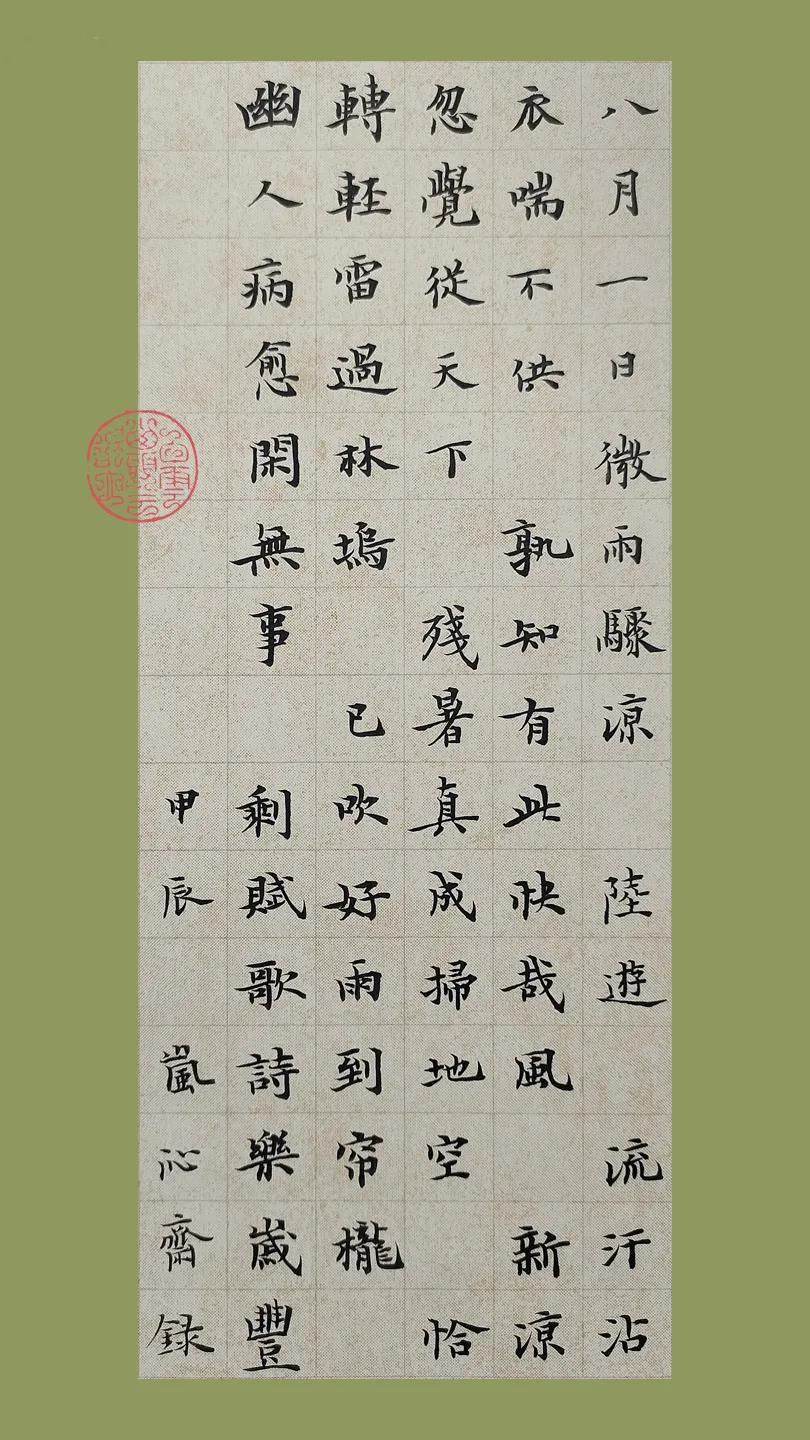 八月一日微雨驟涼 陸遊 流汗沾
衣喘不供 孰知有此快哉風 新涼
忽覺從天下 殘暑真成掃地空 恰
轉輕雷過林塢 已吹好雨到帘櫳
幽人病愈閑無事 剩賦歌詩樂歲豐
甲辰 嵐沁齋録